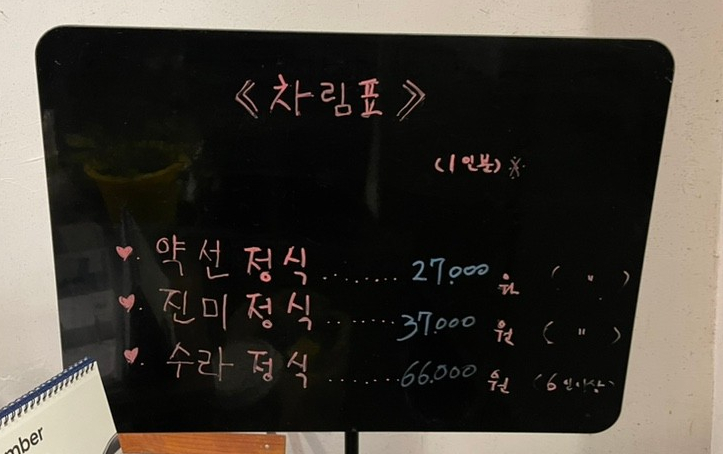 《차림표》
(1인분)※
♥. 약선정식 ........ 27.000원 ( " )
♥. 진미정식 ........ 37.000원 ( " )
♥. 수라정식 ........ 66.000원 (6인이상)
mber